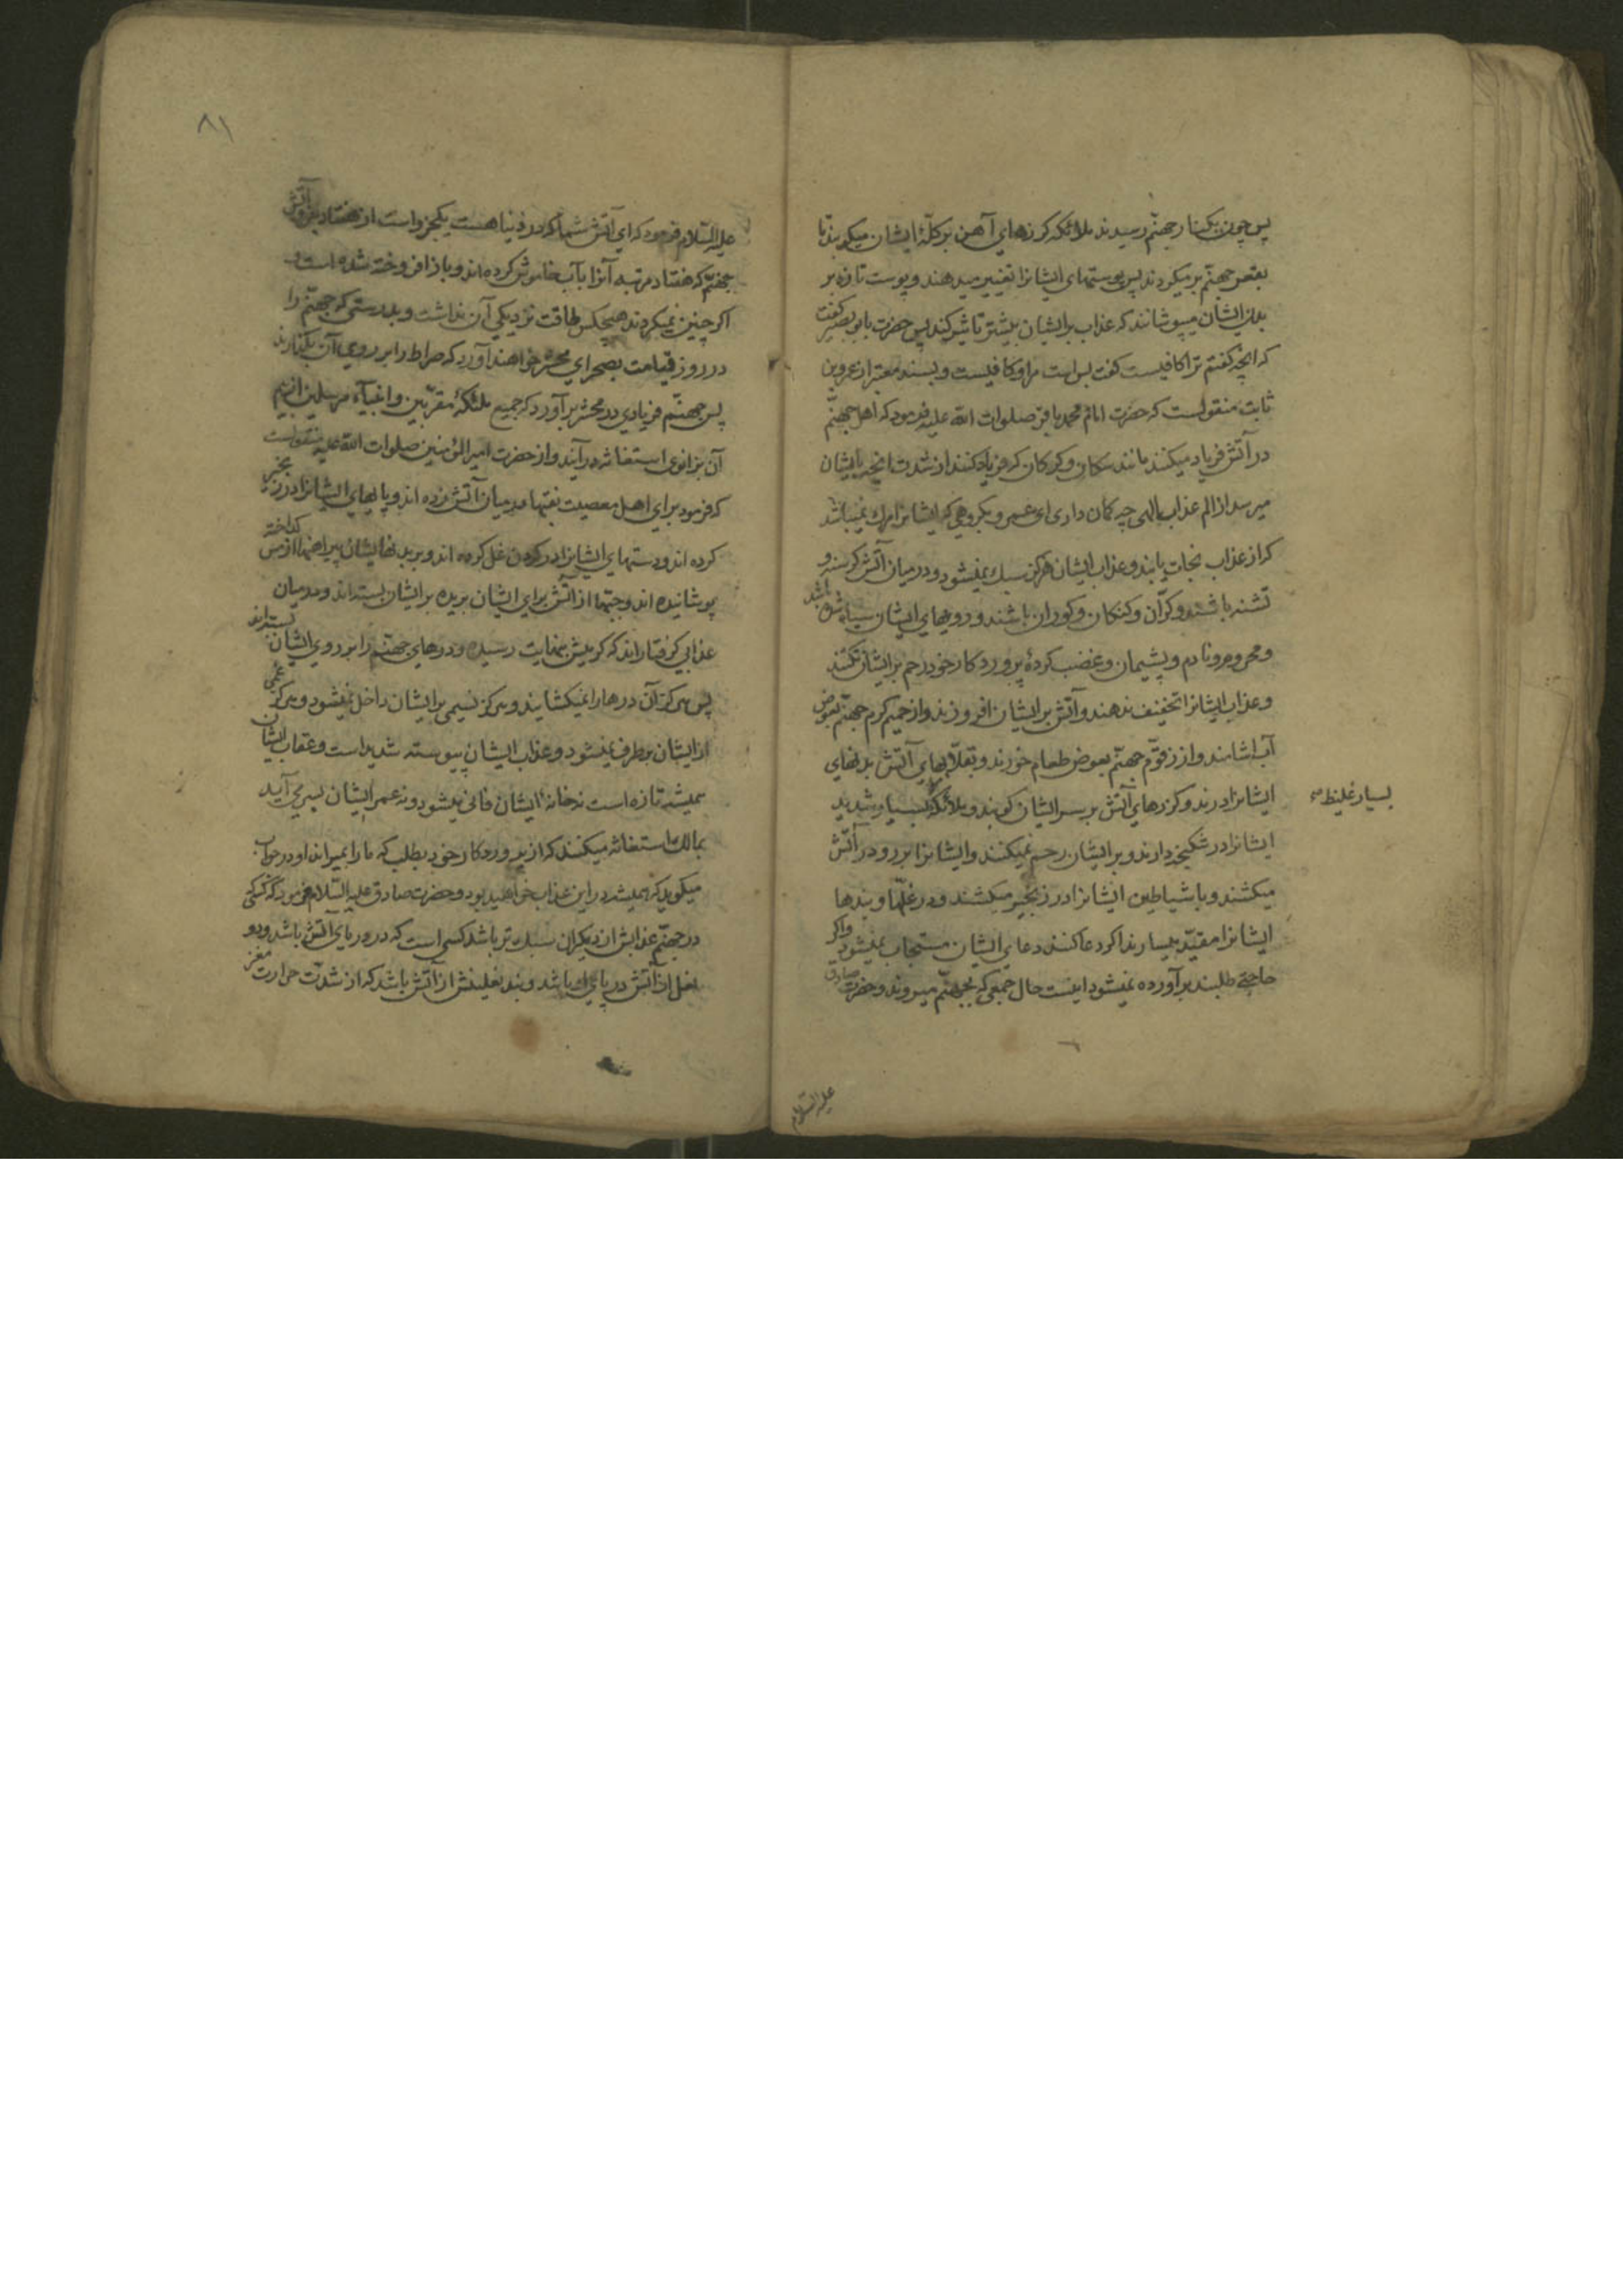 پس چون بکنار جهنم رسیدند ملائکه کرزهای آهن بر کلهٔ ایشان میکوبند تا
بقعر جهنم بر میکردند پس پوستهای ایشانرا تغییر میدهند و پوست تازه بر
بدن ایشان میپوشانند که عذاب بر ایشان بیشتر تاثیر کند پس حضرت بابو بصیر گفت
که انچه کفتم ترا کافیست کفت بس است مرا و کافیست و بسند معتبر از عمرو بن
ثابت منقولست که حضرت امام محمد باقر صلوات الله علیه فرمود که اهل جهنم
در آتش فریاد میکنند مانند سکان و کرکان که فریاد کنند از شدت انچه بایشان
میرسد از الم عذاب الهی چه کمان داری ای عمرو بکروهی که ایشانرا مرک نمیباشد
که از عذاب نجات یابند و عذاب ایشان هرکز سبک نمیشود و در میان آتش کرسنه و
تشنه باشند و کران و کنکان و کوران باشند و رویهای ایشان سیاه شده باشد
و محروم و نادم و پشیمان و غضب کردهٔ پروردکار خود رحم بر ایشان نکنند
و عذاب ایشانرا تخفیف ندهند و آتش بر ایشان افروزند و از حمیم کرم جهنم بعوض
آب اشامند و از زقوم جهنم بعوض طعام خورند و بقلابهای آتش بدنهای
ایشانرا درند و کرزهای آتش بر سر ایشان کوبند و ملائکه بسیار شدید
بسیار غلیظ
ایشانرا در شکنجه دارند و بر ایشان رحم نمیکنند و ایشانرا بر رو در آتش
میکشند و با شیاطین ایشانرا در زنجیر میکشند و در غلها و بندها
ایشانرا مقید میسازند اکر دعا کنند دعای ایشان مستجاب نمیشود و اکر
حاجتی طلبند بر آورده نمیشود اینست حال جمعی که بجهنم میروند و حضرت صادق
علیه السلام
۸۱
علیه السلام فرمود که ای آتش شما که در دنیا هست یکجزو است از هفتاد جزو آتش
جهنم که هفتاد مرتبه آنرا بآب خاموش کرده اند و باز افروخته شده است و
اکر چنین نمیکردند هیچکس طاقت نزدیکی آن نداشت و بدرستی که جهنم را
در روز قیامت بصحرای محشر خواهند آورد که صراط را بر روی آن بکذارند
پس جهنم فریادی در محشر بر آورد که جمیع ملئکهٔ مقربین و انبیآء مرسلین از بیم
آن بزانوی استغاثه در آیند و از حضرت امیر المؤمنین صلوات الله علیه منقولست
که فرمود برای اهل معصیت نقبها در میان آتش زده اند و پایهای ایشانرا در زنجیر
کرده اند و دستهای ایشانرا در کردن غل کرده اند و بر بدنهای ایشان پیراهنها از مس کداخته
پوشانیده اند و جبّها از آتش برای ایشان بریده بر ایشان بسته اند و در میان
عذابی کرفتار اند که کرمیش بنهایت رسیده و درهای جهنم را بر روی ایشان بسته اند
پس هرکز آن درها را نمیکشایند و هرکز نسیمی بر ایشان داخل نمیشود و هرکز غمی
از ایشان بر طرف نمیشود و عذاب ایشان پیوسته شدید است و عقاب ایشان
همیشه تازه است نه خانهٔ ایشان فانی میشود و نه عمر ایشان بسر می آید
بمالک استغاثه میکنند که از پروردکار خود بطلب که ما را بمیراند او در جواب
میکوید که همیشه در این عذاب خواهید بود و حضرت صادق علیه السلام فرمود که کسی
در جهنم عذابش از دیکران سبک تر باشد کسی است که در دریای آتش باشد و دو
نعل از آتش در پای او باشد و بند نعلینش از آتش باشد که از شدت حرارت مغز